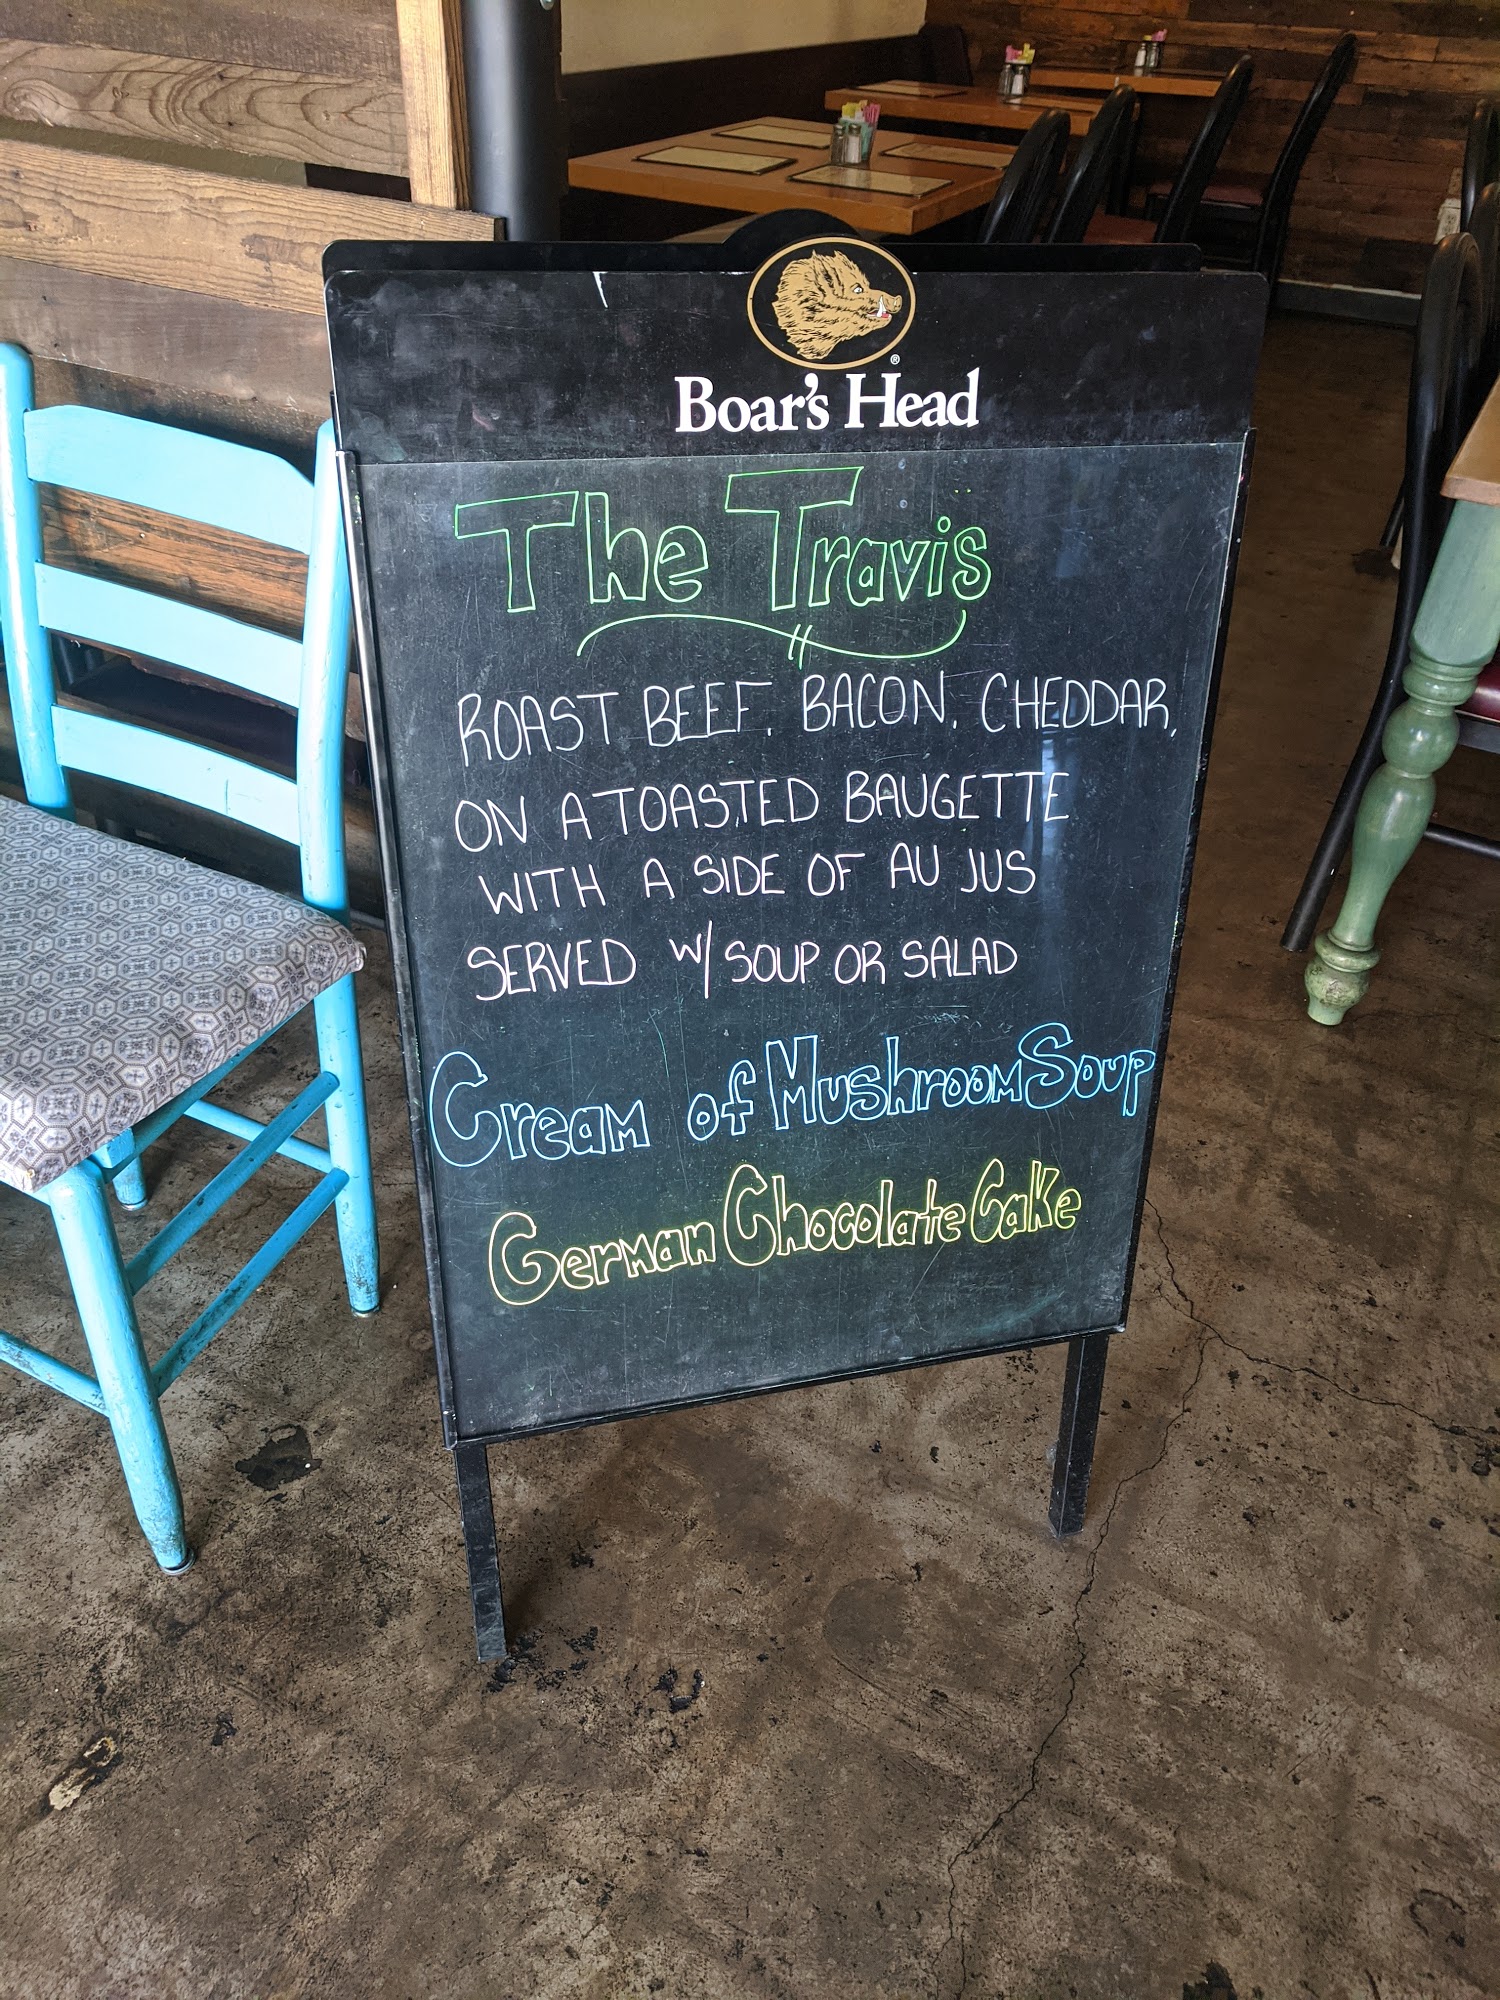 Boar's Head®
The Travis
ROAST BEEF, BACON, CHEDDAR,
ON A TOASTED BAUGETTE
WITH A SIDE OF AU JUS
SERVED W/ SOUP OR SALAD
Cream of Mushroom Soup
German Chocolate Cake